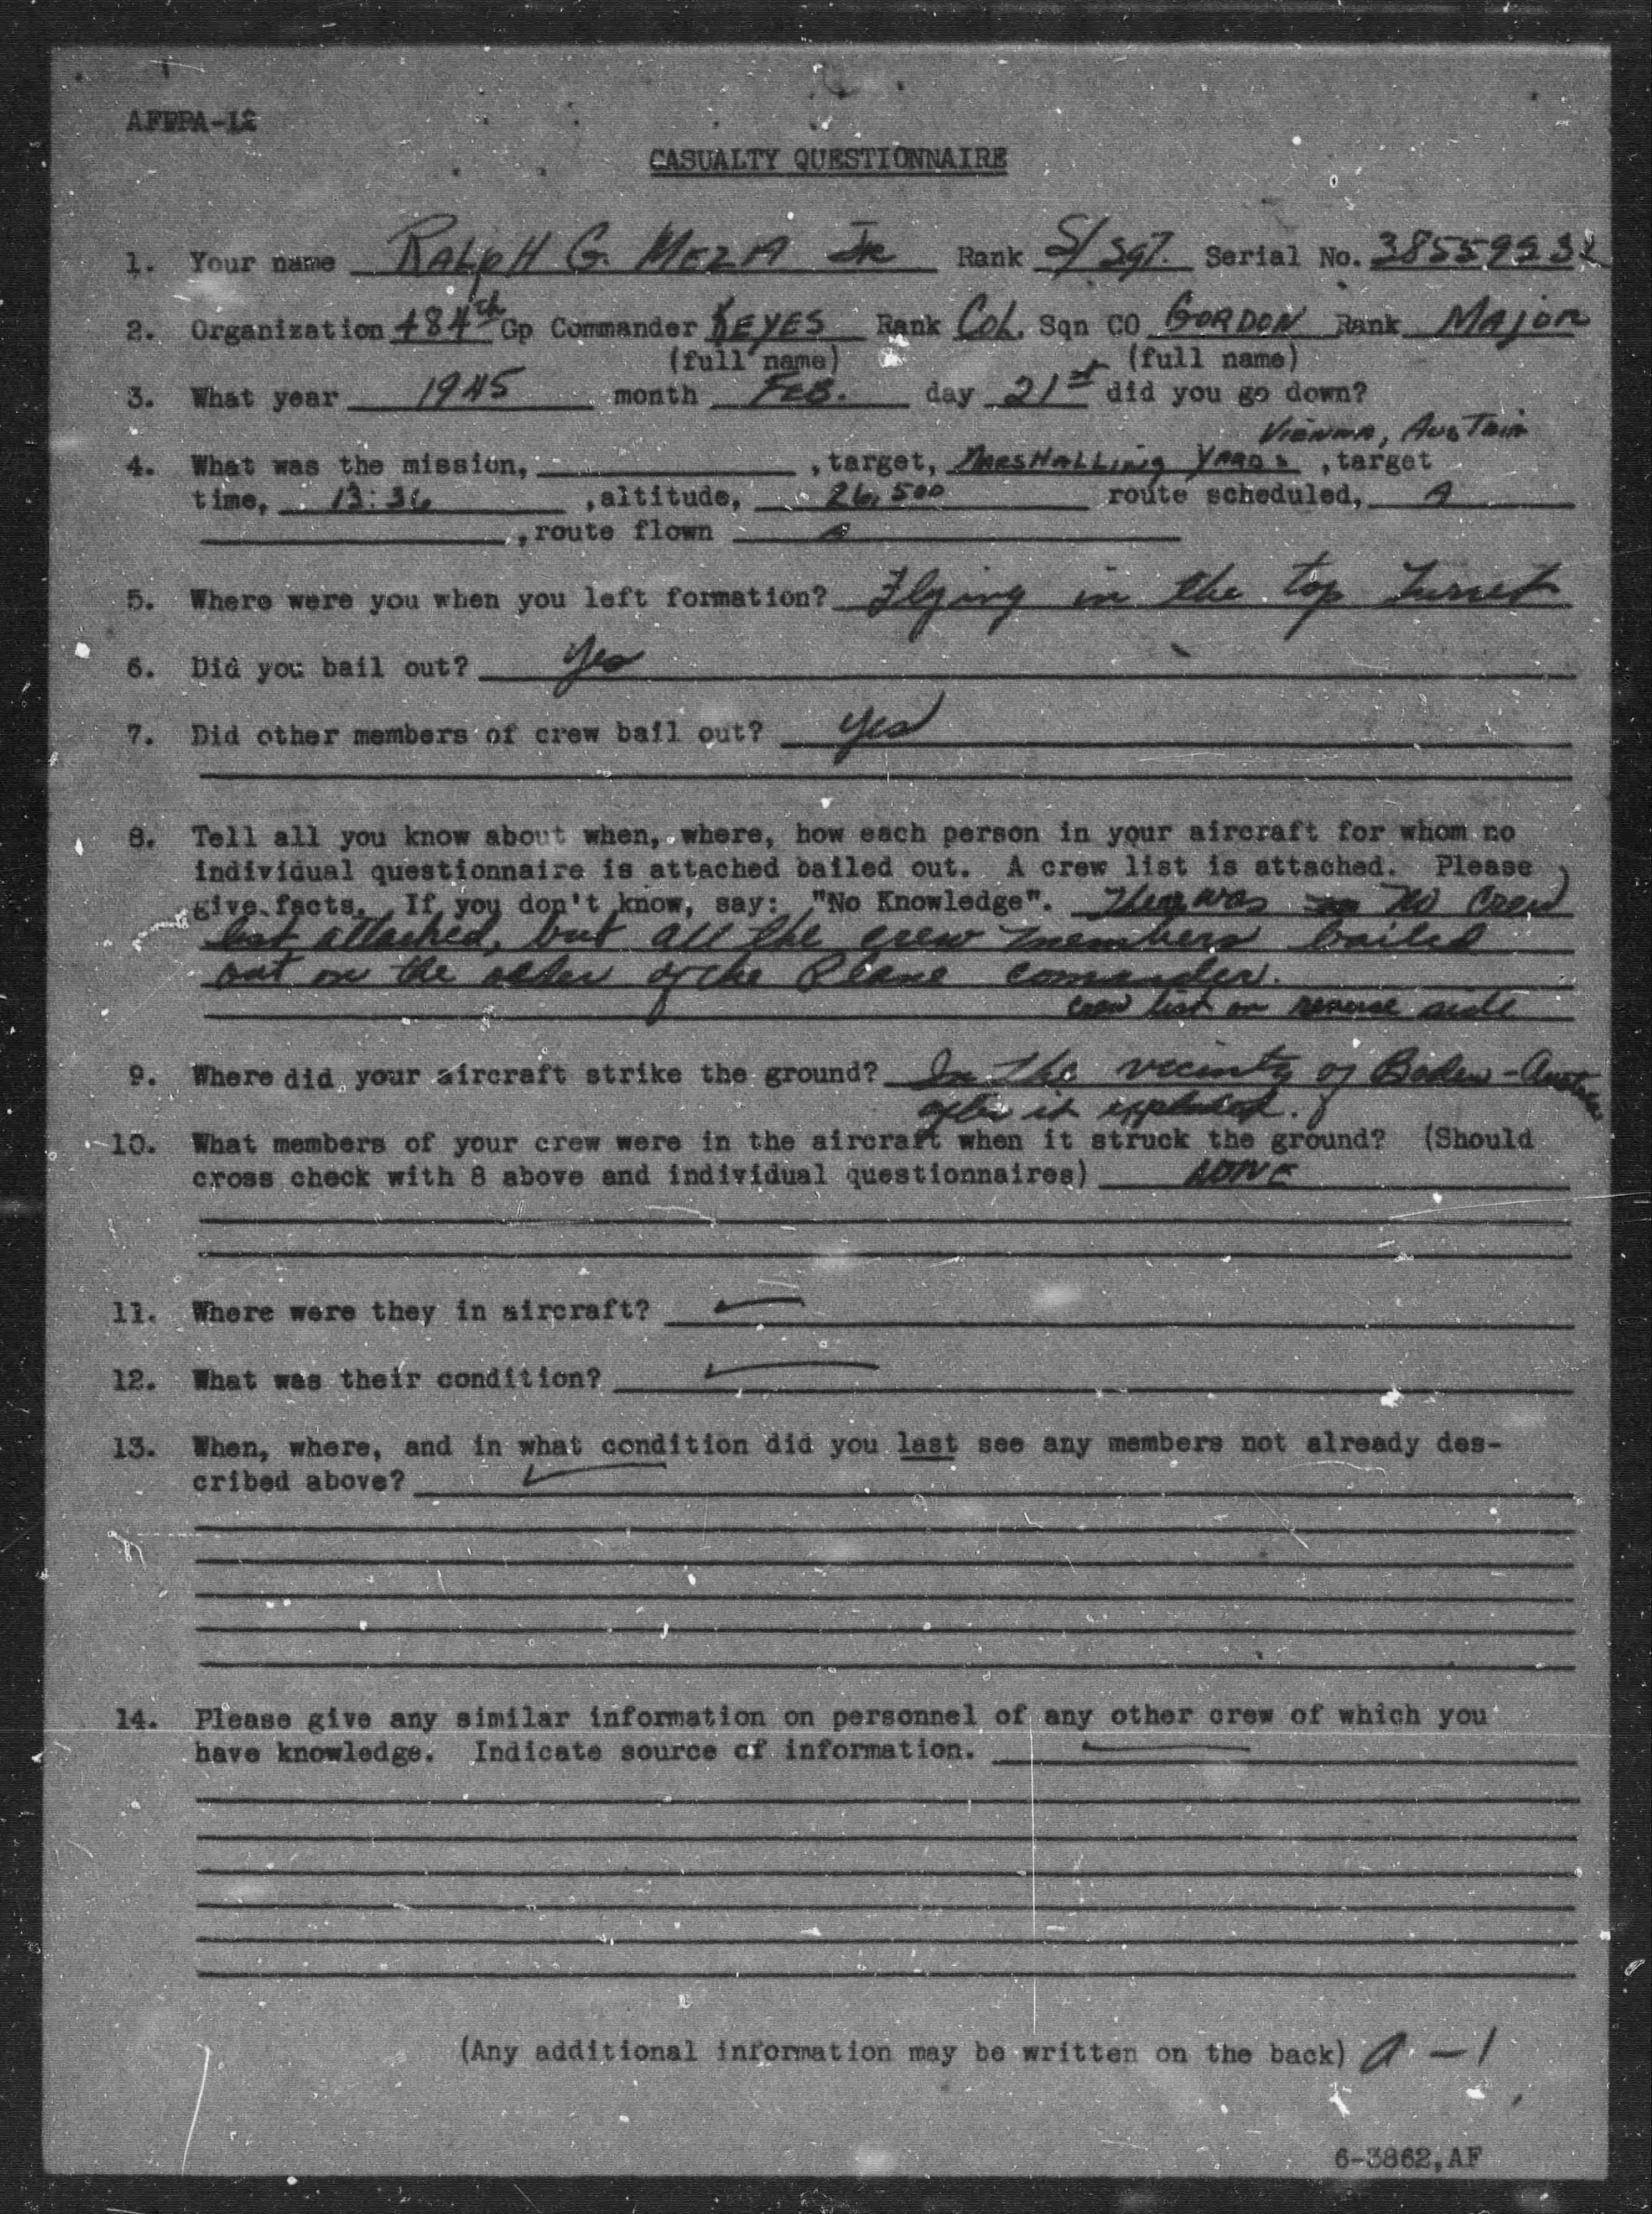 AFPPA-12
CASUALTY QUESTIONNAIRE
1. Your name RALPH G. MEZA JR Rank S/Sgt. Serial No. 3855993
2. Organization 484th Gp Commander KEYES Rank Col. Sqn CO GORDON Rank MAJOR
(full name) (full name)
3. What year 1945 month FEB. day 21st did you go down?
VIENNA, AUSTRIA
4. What was the mission, , target, MARSHALLING YARDS , target
time, 13:36 , altitude, 26,500 route scheduled,
, route flown
5. Where were you when you left formation? Flying in the top turret
6. Did you bail out? Yes
7. Did other members of crew bail out? yes
8. Tell all you know about when, where, how each person in your aircraft for whom no
individual questionnaire is attached bailed out. A crew list is attached. Please
give facts. If you don't know, say: "No Knowledge". was no crew
list attached, but all the crew members bailed
out on the order of the Plane comander.
crew list on reverse side
9. Where did your aircraft strike the ground? In the vicinity of Baden-Austria
after it exploded.
10. What members of your crew were in the aircraft when it struck the ground? (Should
cross check with 8 above and individual questionnaires) NONE
11. Where were they in aircraft?
12. What was their condition?
13. When, where, and in what condition did you last see any members not already des-
cribed above?
14. Please give any similar information on personnel of any other crew of which you
have knowledge. Indicate source of information.
(Any additional information may be written on the back) A-1
6-3862,AF